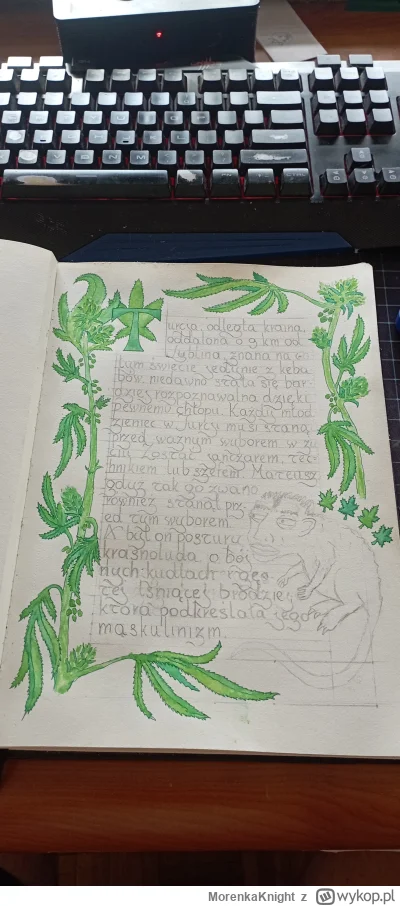 Turcja, odległa kraina,
oddalona o 9 km od
Lublina, znana na ca-
łym świecie jedynie z keba-
bów, niedawno stała się bar-
dziej rozpoznawalna dzięki
pewnemu chłopu. Każdy młod
zieniec w Turcji musi stanąć
przed ważnym wyborem w ży-
ciu zostać janczarem, tec-
hnikiem lub szerem. Mateusz
gdyż tak go zwano
również stanął prz-
ed tym wyborem.
A był on postury
krasnoluda o bój
nych kudłach i gęs
tej lśniącej brodzie,
która podkreślała jego
maskulinizm.
MorenkaKnight z wykop.pl